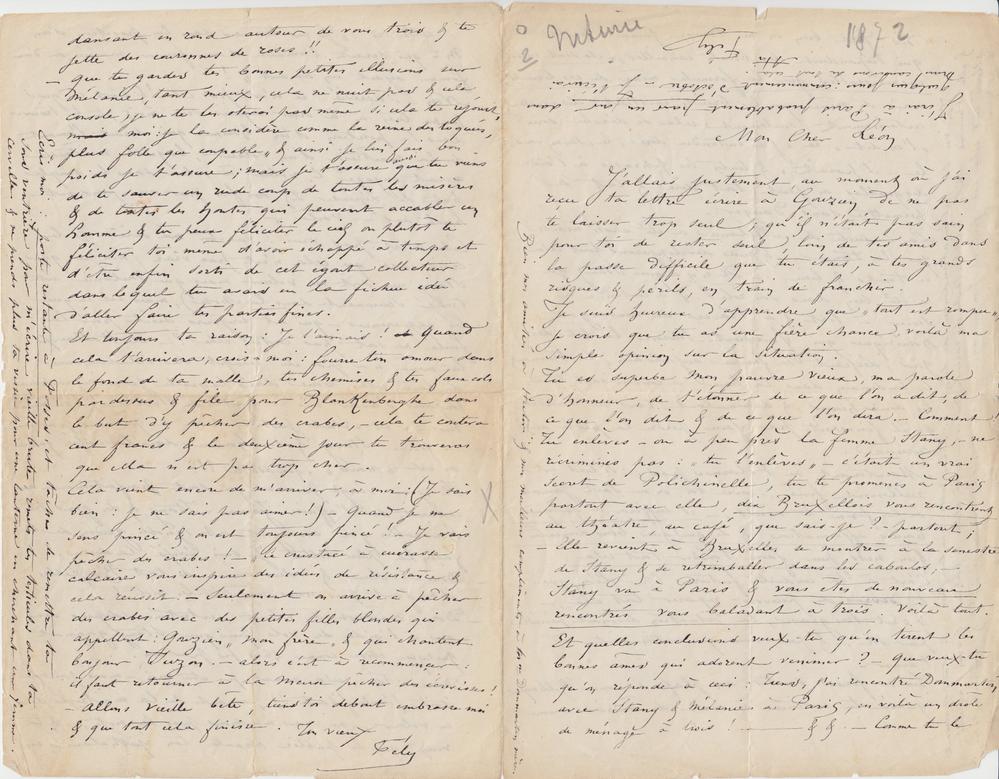 1872
2
Fély
J'irai à Paris probablement faire un tour dans
quelques jours : commencement d'octobre – Je t'écrirai
Mon Cher Léon
J'allais justement, au moment où j'ai
reçu ta lettre écrire à Gouzien de ne pas
te laisser trop seul ; qu'il n'était pas sain
pour toi de rester seul, loin de tes amis dans
la passe difficile que tu étais, à tes grands
risques & périls, en train de franchir.
Je suis heureux d'apprendre que "tout est rompu",
Je crois que tu as une fière chance, voilà ma
simple opinion sur la situation.
Tu es superbe mon pauvre vieux, ma parole
d'honneur, de t'étonner de ce que l'on a dit, de
ce que l'on dit & de ce que l'on dira. – Comment !
Tu enlèves – ou à peu près la femme Stany, – ne
récrimines pas : "tu l'enlèves" – c'était un vrai
secret de Polichinelle, tu te promènes à Paris
partout avec elle, dix Bruxellois vous rencontrent
au théâtre, au café, que sais-je ? – partout ;
– Elle revient à Bruxelles se montrer à la
de Stany & se retremballer dans les caboulos, –
Stany va à Paris & vous êtes de nouveau
rencontrés vous baladant à trois. Voilà tout.
Et quelles conclusions veux-tu qu'en tirent les
bonnes âmes qui adorent venimer ? – Que veux-tu
qu'on réponde à ceci : Tiens, j'ai rencontré Dommartin
avec Stany & Mélanie à Paris, en voilà un drôle
de ménage à trois ! – && – Comme tu le
Bien mes amitiés à & mes meilleurs compliments à Dommartin mère.
dansant en rond autour de vous trois & te
jette des couronnes de roses !!
– que tu gardes tes bonnes petites illusions sur
Mélanie, tant mieux, cela ne nuit pas & cela
console ; je ne te les ôterai pas même si cela te réjouit,
mais moi : je la considère comme la reine des toqués,
plus folle que coupable, & ainsi je lui fais bon
poids je t'assure ; mais je t'assure aussi que tu viens
de te sauver un rude coup de toutes les misères
& de toutes les hontes qui peuvent accabler un
homme & tu peux féliciter le ciel ou plutôt te
féliciter toi même d'avoir échappé à temps et
d'être enfin sorti de cet égout collecteur
dans lequel tu avais eu la fichue idée
d'aller faire tes parties fines.
Et toujours ta raison : Je l'aimais ! Quand
cela t'arrivera, crois-moi : fourre ton amour dans
le fond de ta malle, tes chemises & tes faux cols
par dessus & file pour Blankenberghe dans
le but d'y pêcher des crabes, – cela te coûtera
cent francs & le deuxième jour tu trouveras
que cela n'est pas trop cher.
Cela vient encore de m'arriver, à moi ! (Je sais
bien : je ne sais pas aimer !) – Quand je me
sens pincé & on est toujours pincé ! – Je vais
pêcher des crabes ! – ce crustacé à cuirasse
calcaire vous inspire des idées de résistance &
cela réussit : – Seulement on arrive à pêcher
des crabes avec des petites filles blondes qui
appellent : Gouzien, "mon frère", & qui chantent
bonjour Suzon. – alors c'est à recommencer :
il faut retourner à la Meuse pêcher des écrevisses !
– Allons vieille bête, tiens toi debout embrasse moi
& que tout cela finisse. Ton vieux
Fély
Ecris moi : poste restante à Fosses, et tâche de remettre ta
cervelle & ne perds plus ta vie pour une